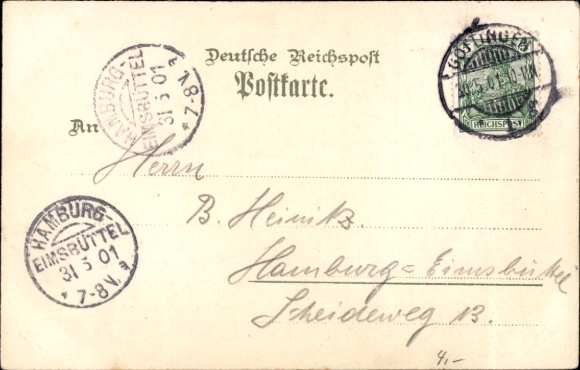 Deutsche Reichspost
Postkarte.
GÖTTINGEN
5.01.
REICHSPOST
HAMBURG-
EIMSBÜTTEL
31 5 01
* 7-8 V.
An
Herrn
B. Heinitz.
HAMBURG-
EIMSBÜTTEL
31 5 01
* 7-8 V. *
Hamburg=Eimsbüttel
Scheideweg 13.
4,-